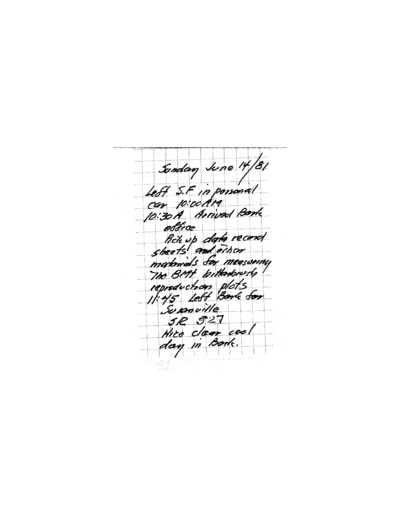 Sunday June 14/81
Left S.F in personal
car 10:00AM
10:30A Arrived Berk
office
Pick up data record
sheets and other
materials for measuring
The BMt bitterbrush
reproduction plots
11:45 Left Berk for
Susanville
SR 327
Nice clear cool
day in Berk.